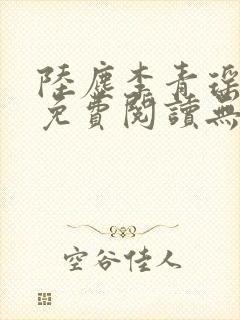 陸塵李青瑤
免費閱讀無
空谷佳人